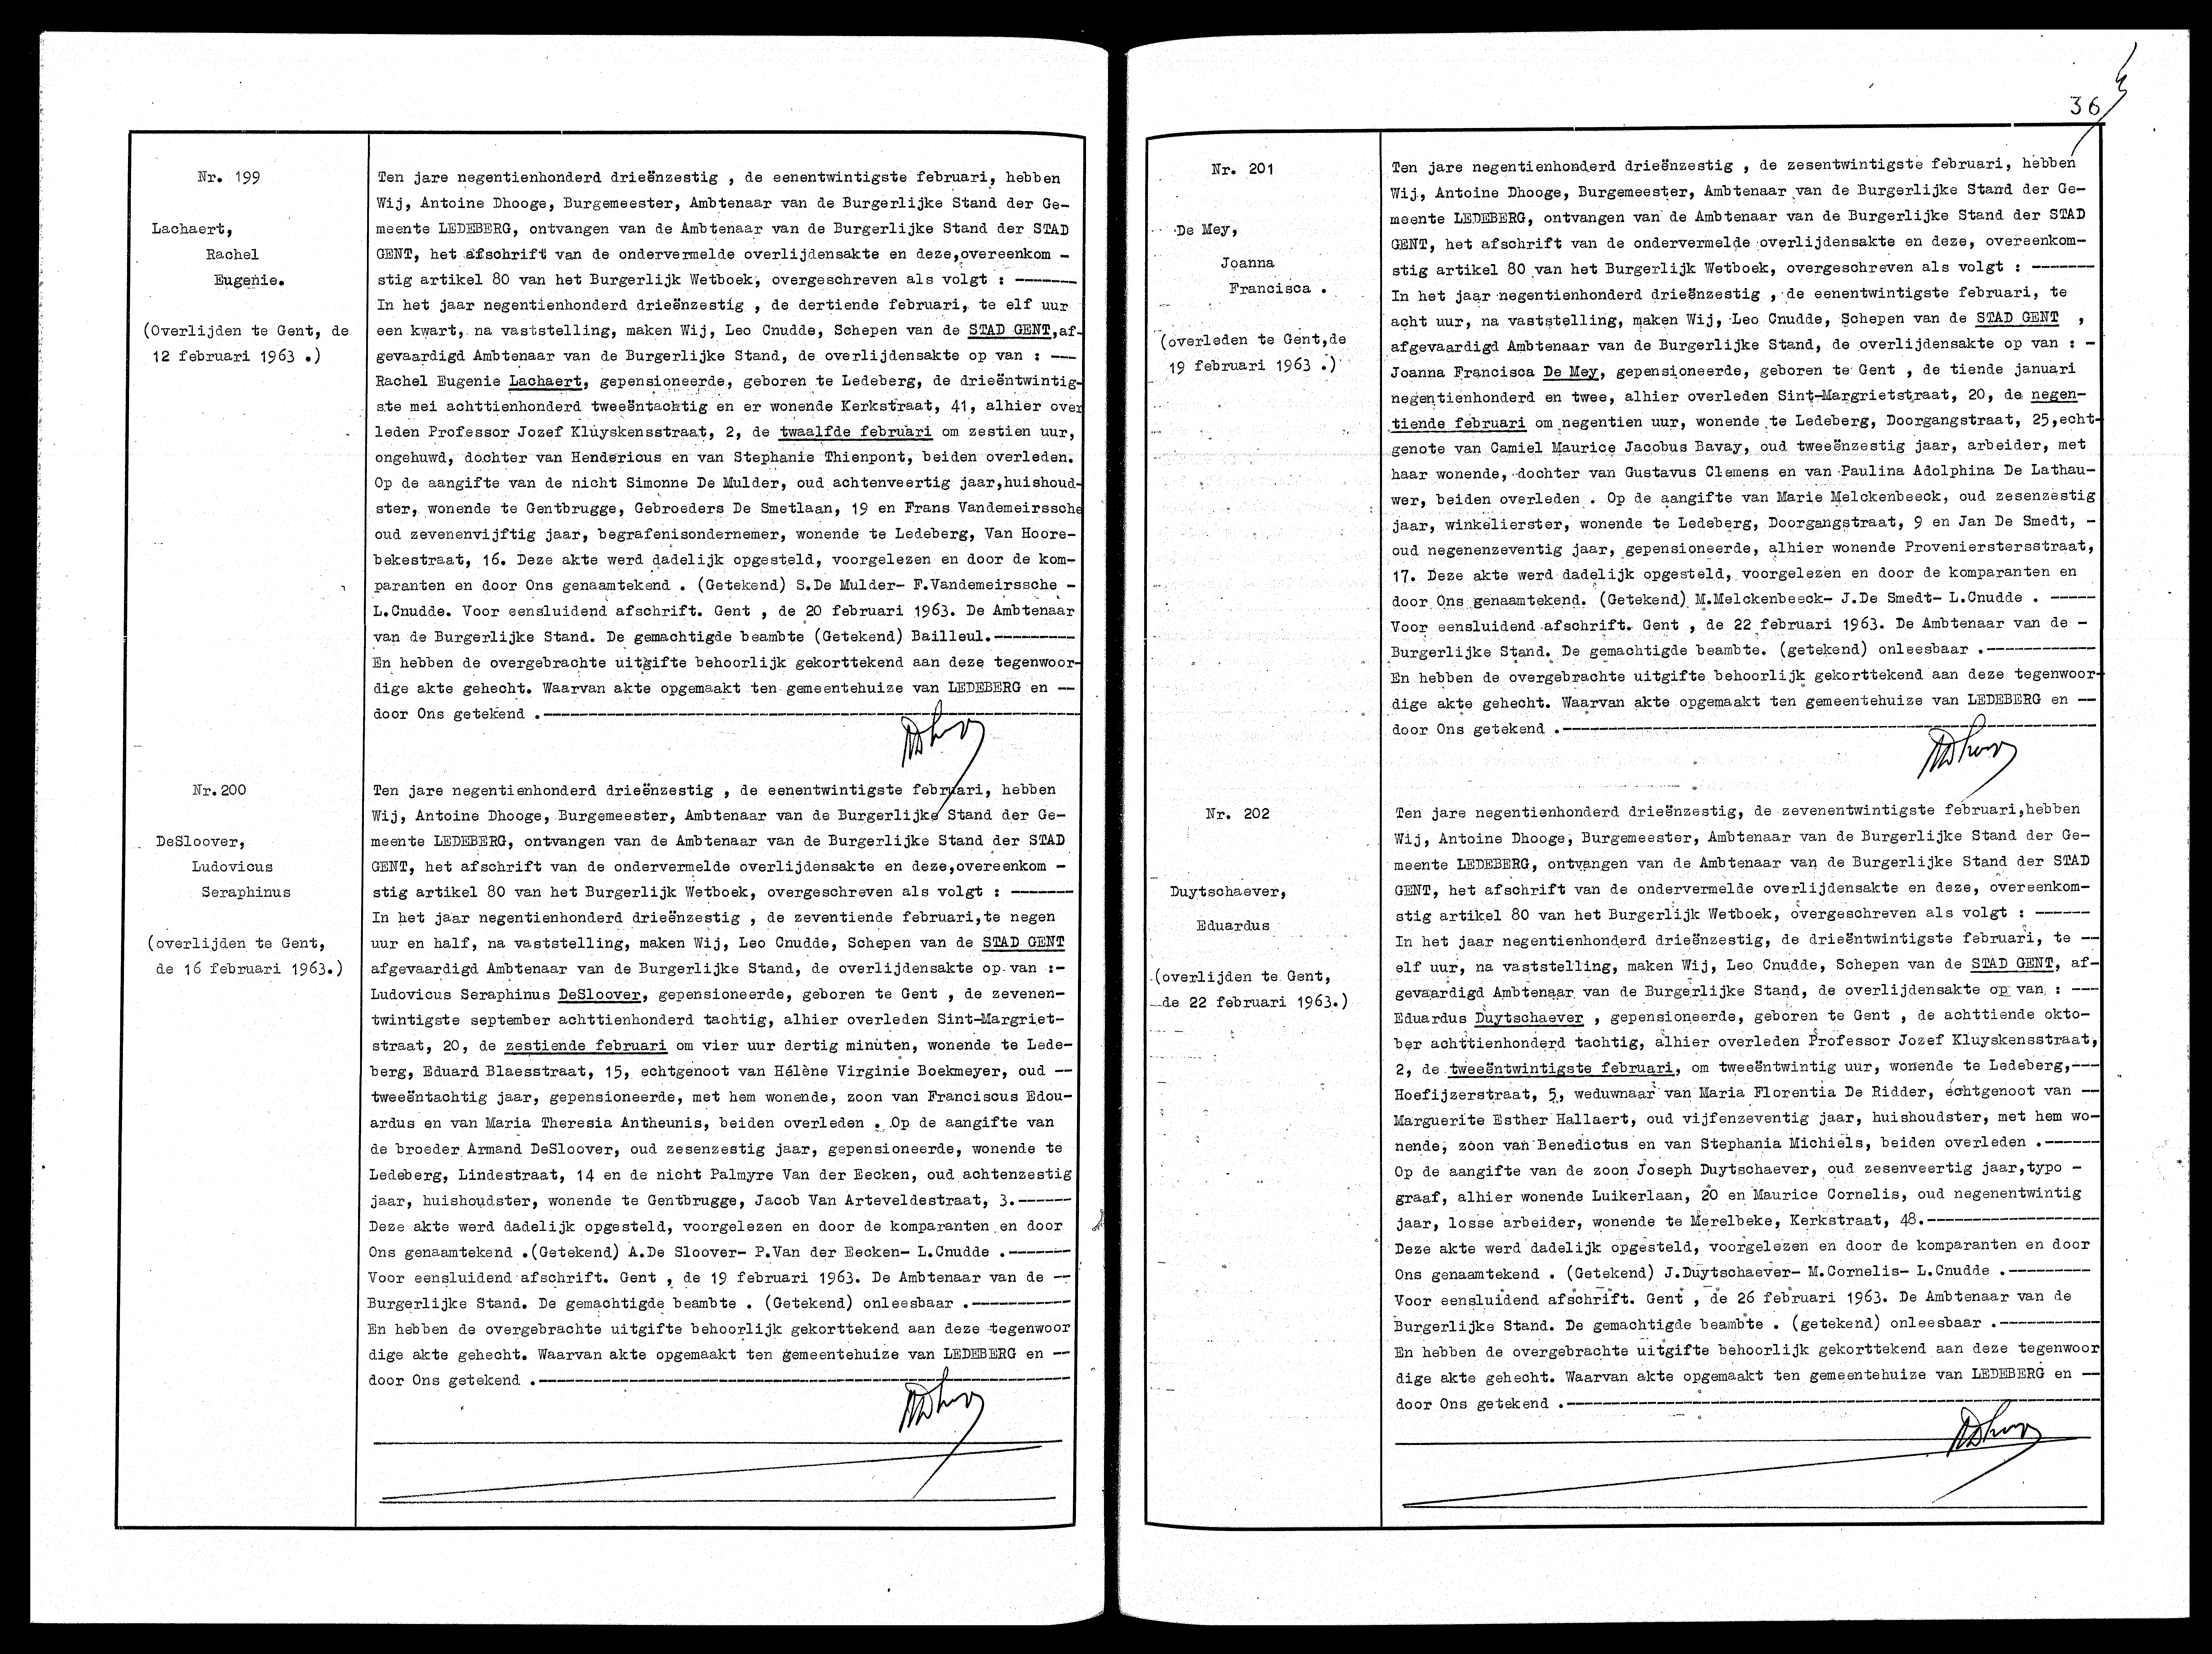 Nr. 199
Lachaert,
Rachel
Eugenie.
(Overlijden te Gent, de
12 februari 1963 .)
Ten jare negentienhonderd drieënzestig , de eenentwintigste februari, hebben
Wij, Antoine Dhooge, Burgemeester, Ambtenaar van de Burgerlijke Stand der Ge-
meente LEDEBERG, ontvangen van de Ambtenaar van de Burgerlijke Stand der STAD
GENT, het afschrift van de ondervermelde overlijdensakte en deze,overeenkom -
stig artikel 80 van het Burgerlijk Wetboek, overgeschreven als volgt : -------
In het jaar negentienhonderd drieënzestig , de dertiende februari, te elf uur
een kwart, na vaststelling, maken Wij, Leo Cnudde, Schepen van de STAD GENT,af-
gevaardigd Ambtenaar van de Burgerlijke Stand, de overlijdensakte op van : ---
Rachel Eugenie Lachaert, gepensioneerde, geboren te Ledeberg, de drieëntwintig-
ste mei achttienhonderd tweeëntachtig en er wonende Kerkstraat, 41, alhier over
leden Professor Jozef Kluyskensstraat, 2, de twaalfde februari om zestien uur,
ongehuwd, dochter van Hendericus en van Stephanie Thienpont, beiden overleden.
Op de aangifte van de nicht Simonne De Mulder, oud achtenveertig jaar,huishoud-
ster, wonende te Gentbrugge, Gebroeders De Smetlaan, 19 en Frans Vandemeirssche
oud zevenenvijftig jaar, begrafenisondernemer, wonende te Ledeberg, Van Hoore-
bekestraat, 16. Deze akte werd dadelijk opgesteld, voorgelezen en door de kom-
paranten en door Ons genaamtekend . (Getekend) S.De Mulder- F.Vandemeirssche -
L.Cnudde. Voor eensluidend afschrift. Gent , de 20 februari 1963. De Ambtenaar
van de Burgerlijke Stand. De gemachtigde beambte (Getekend) Bailleul.---------
En hebben de overgebrachte uitgifte behoorlijk gekorttekend aan deze tegenwoor-
dige akte gehecht. Waarvan akte opgemaakt ten gemeentehuize van LEDEBERG en --
door Ons getekend .-----------------------------------------------------------
Nr.200
DeSloover,
Ludovicus
Seraphinus
(overlijden te Gent,
de 16 februari 1963.)
Ten jare negentienhonderd drieënzestig , de eenentwintigste februari, hebben
Wij, Antoine Dhooge, Burgemeester, Ambtenaar van de Burgerlijke Stand der Ge-
meente LEDEBERG, ontvangen van de Ambtenaar van de Burgerlijke Stand der STAD
GENT, het afschrift van de ondervermelde overlijdensakte en deze,overeenkom -
stig artikel 80 van het Burgerlijk Wetboek, overgeschreven als volgt : -------
In het jaar negentienhonderd drieënzestig , de zeventiende februari,te negen
uur en half, na vaststelling, maken Wij, Leo Cnudde, Schepen van de STAD GENT
afgevaardigd Ambtenaar van de Burgerlijke Stand, de overlijdensakte op van :-
Ludovicus Seraphinus DeSloover, gepensioneerde, geboren te Gent , de zevenen-
twintigste september achttienhonderd tachtig, alhier overleden Sint-Margriet-
straat, 20, de zestiende februari om vier uur dertig minuten, wonende te Lede-
berg, Eduard Blaesstraat, 15, echtgenoot van Hélène Virginie Boekmeyer, oud --
tweeëntachtig jaar, gepensioneerde, met hem wonende, zoon van Franciscus Edou-
ardus en van Maria Theresia Antheunis, beiden overleden . Op de aangifte van
de broeder Armand DeSloover, oud zesenzestig jaar, gepensioneerde, wonende te
Ledeberg, Lindestraat, 14 en de nicht Palmyre Van der Eecken, oud achtenzestig
jaar, huishoudster, wonende te Gentbrugge, Jacob Van Arteveldestraat, 3.------
Deze akte werd dadelijk opgesteld, voorgelezen en door de komparanten en door
Ons genaamtekend .(Getekend) A.De Sloover- P.Van der Eecken- L.Cnudde .-------
Voor eensluidend afschrift. Gent , de 19 februari 1963. De Ambtenaar van de --
Burgerlijke Stand. De gemachtigde beambte . (Getekend) onleesbaar .-----------
En hebben de overgebrachte uitgifte behoorlijk gekorttekend aan deze tegenwoor
dige akte gehecht. Waarvan akte opgemaakt ten gemeentehuize van LEDEBERG en --
door Ons getekend .-----------------------------------------------------------
36
Nr. 201
De Mey,
Joanna
Francisca .
(overleden te Gent,de
19 februari 1963 .)
Ten jare negentienhonderd drieënzestig , de zesentwintigste februari, hebben
Wij, Antoine Dhooge, Burgemeester, Ambtenaar van de Burgerlijke Stand der Ge-
meente LEDEBERG, ontvangen van de Ambtenaar van de Burgerlijke Stand der STAD
GENT, het afschrift van de ondervermelde overlijdensakte en deze, overeenkom-
stig artikel 80 van het Burgerlijk Wetboek, overgeschreven als volgt : -------
In het jaar negentienhonderd drieënzestig , de eenentwintigste februari, te
acht uur, na vaststelling, maken Wij, Leo Cnudde, Schepen van de STAD GENT ,
afgevaardigd Ambtenaar van de Burgerlijke Stand, de overlijdensakte op van : -
Joanna Francisca De Mey, gepensioneerde, geboren te Gent , de tiende januari
negentienhonderd en twee, alhier overleden Sint-Margrietstraat, 20, de negen-
tiende februari om negentien uur, wonende te Ledeberg, Doorgangstraat, 25,echt-
genote van Camiel Maurice Jacobus Bavay, oud tweeënzestig jaar, arbeider, met
haar wonende, dochter van Gustavus Clemens en van Paulina Adolphina De Lathau-
wer, beiden overleden . Op de aangifte van Marie Melckenbeeck, oud zesenzestig
jaar, winkelierster, wonende te Ledeberg, Doorgangstraat, 9 en Jan De Smedt, -
oud negenenzeventig jaar, gepensioneerde, alhier wonende Provenierstersstraat,
17. Deze akte werd dadelijk opgesteld, voorgelezen en door de komparanten en
door Ons genaamtekend. (Getekend) M.Melckenbeeck- J.De Smedt- L.Cnudde . -----
Voor eensluidend afschrift. Gent , de 22 februari 1963. De Ambtenaar van de -
Burgerlijke Stand. De gemachtigde beambte. (getekend) onleesbaar .------------
En hebben de overgebrachte uitgifte behoorlijk gekorttekend aan deze tegenwoor-
dige akte gehecht. Waarvan akte opgemaakt ten gemeentehuize van LEDEBERG en --
door Ons getekend .-----------------------------------------------------------
Nr. 202
Duytschaever,
Eduardus
(overlijden te Gent,
de 22 februari 1963.)
Ten jare negentienhonderd drieënzestig, de zevenentwintigste februari,hebben
Wij, Antoine Dhooge, Burgemeester, Ambtenaar van de Burgerlijke Stand der Ge-
meente LEDEBERG, ontvangen van de Ambtenaar van de Burgerlijke Stand der STAD
GENT, het afschrift van de ondervermelde overlijdensakte en deze, overeenkom-
stig artikel 80 van het Burgerlijk Wetboek, overgeschreven als volgt : ------
In het jaar negentienhonderd drieënzestig, de drieëntwintigste februari, te --
elf uur, na vaststelling, maken Wij, Leo Cnudde, Schepen van de STAD GENT, af-
gevaardigd Ambtenaar van de Burgerlijke Stand, de overlijdensakte op van : ---
Eduardus Duytschaever , gepensioneerde, geboren te Gent , de achttiende okto-
ber achttienhonderd tachtig, alhier overleden Professor Jozef Kluyskensstraat,
2, de tweeëntwintigste februari, om tweeëntwintig uur, wonende te Ledeberg,---
Hoefijzerstraat, 5, weduwnaar van Maria Florentia De Ridder, echtgenoot van --
Marguerite Esther Hallaert, oud vijfenzeventig jaar, huishoudster, met hem wo-
nende, zoon van Benedictus en van Stephania Michiels, beiden overleden .------
Op de aangifte van de zoon Joseph Duytschaever, oud zesenveertig jaar,typo -
graaf, alhier wonende Luikerlaan, 20 en Maurice Cornelis, oud negenentwintig
jaar, losse arbeider, wonende te Merelbeke, Kerkstraat, 48.-------------------
Deze akte werd dadelijk opgesteld, voorgelezen en door de komparanten en door
Ons genaamtekend . (Getekend) J.Duytschaever- M.Cornelis- L.Cnudde .---------
Voor eensluidend afschrift. Gent , de 26 februari 1963. De Ambtenaar van de
Burgerlijke Stand. De gemachtigde beambte . (getekend) onleesbaar .-----------
En hebben de overgebrachte uitgifte behoorlijk gekorttekend aan deze tegenwoor
dige akte gehecht. Waarvan akte opgemaakt ten gemeentehuize van LEDEBERG en --
door Ons getekend .-----------------------------------------------------------